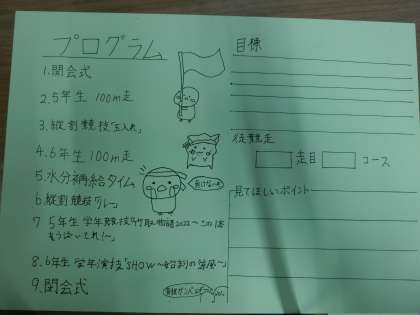 プログラム
1.開会式
2.5年生 100m走
3.縦割競技「玉入れ」
4.6年生 100m走
5.水分補給タイム
6.縦割競技 リレー
7.5年生 学年競技「竹取物語2022〜
8.6年生 学年演技「SHOW〜始まりの
9.閉会式
負けないぞ
目標
徒競走
走目
コース
見てほしいポイント